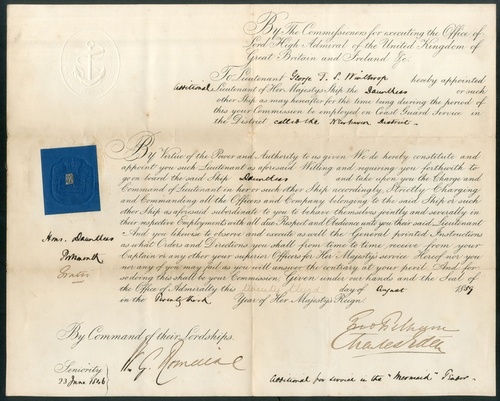 By The Commissioners for executing the Office of
Lord High Admiral of the United Kingdom of
Great Britain and Ireland &c.
To Lieutenant George T. S. Winthrop hereby appointed
Additional Lieutenant of Her Majestys Ship the Dauntless or such
other Ship as may hereafter for the time being during the period of
this your Commission be employed on Coast Guard Service in
the District called the Newhaven District.
By Virtue of the Power and Authority to us given We do hereby constitute and
appoint you such Lieutenant as aforesaid Willing and requiring you forthwith to
go on board the said Ship Dauntless and take upon you the Charge and
Command of Lieutenant in her or such other Ship accordingly, Strictly Charging
and Commanding all the Officers and Company belonging to the said Ship or such
other Ship as aforesaid subordinate to you to behave themselves jointly and severally in
their respective Employments with all due Respect and Obedience unto you their said Lieutenant
And you likewise to observe and execute as well the General printed Instructions
as what Orders and Directions you shall from time to time receive from your
Captain or any other your superior Officers for Her Majestys service Hereof nor you
nor any of you may fail as you will answer the contrary at your peril And for
so doing this shall be your Commission Given under our hands and the Seal of
the Office of Admiralty this day of August 1859
in the Twenty third Year of Her Majestys Reign.
Hms. Dauntless
Portsmouth
By Command of their Lordships.
W. G. Romaine
Seniority
23 June 1846
Additional for service in the "Mermaid" Tender.